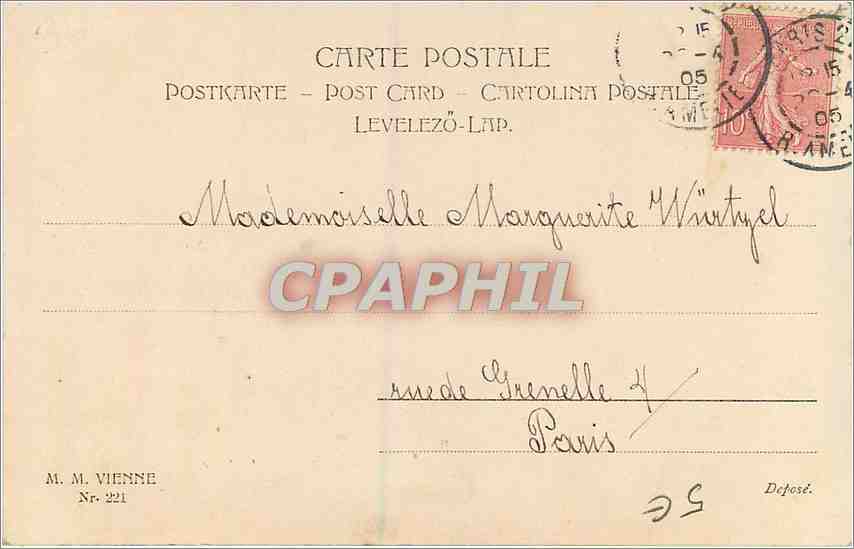 CARTE POSTALE
POSTKARTE – POST CARD – CARTOLINA POSTALE
LEVELEZŐ-LAP.
15
4
05
PARIS
15
4
05
R. AMELIE
10
Mademoiselle Marguerite Würtzel
CPAPHIL
rue de Grenelle 4
Paris
M. M. VIENNE
Nr. 221
5€
Deposé.